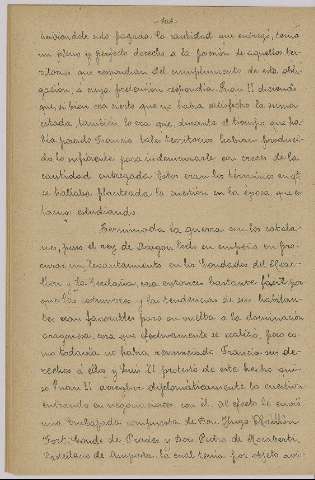 habiéndole sido pagada la cantidad que entregó, tenía
un pleno y perfecto derecho a la posesión de aquellos te-
rritorios que respondían del cumplimiento de esta obli-
gación; a cuya pretensión respondía Juan II diciendo
que, si bien era cierto que no había satisfecho la suma
citada, también lo era que, durante el tiempo que ha-
bía poseído Francia tales territorios habían produci-
do lo suficiente para indemnizarle con creces de la
cantidad entregada. Estos eran los términos en q.
se hallaba planteada la cuestión en la época que es-
tamos estudiando.
Terminada la guerra con los catala-
nes, puso el rey de Aragón todo su empeño en pro-
curar un levantamiento en los Condados del Rose-
llón y la Cerdaña, cosa entonces bastante fácil por
que las costumbres y las tendencias de sus habitan-
tes eran favorables para su vuelta a la dominación
aragonesa, cosa que efectivamente se realizó, pero co-
mo todavía no había renunciado Francia sus de-
rechos a ellos y Luis XI protestó de este hecho qui-
so Juan II arreglar diplomáticamente la cuestión
entrando en negociaciones con él. Al efecto le envió
una embajada compuesta de Don Juan Ramón
Folt, Conde de Prades y Don Pedro de Rocaberti,
Castellano de Amposta, la cual tenía por objeto